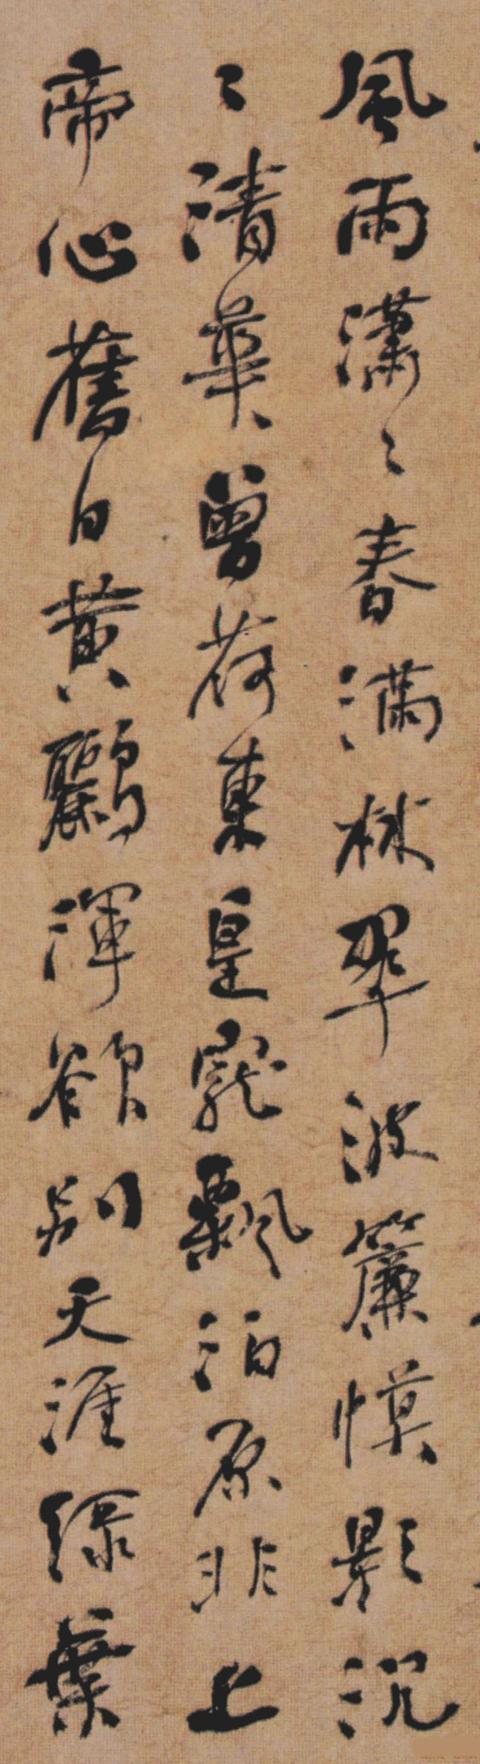 風雨瀟〻春滿林翠波簾幙影沉
〻清華曾荷東皇寵飄泊原非上
帝心舊日黃鸝渾欲別天涯綠葉